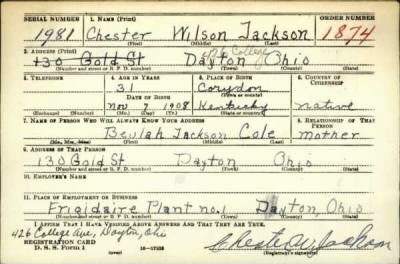 SERIAL NUMBER 1. NAME (Print) ORDER NUMBER
1981 Chester Wilson Jackson 1874
(First) (Middle) (Last)
2. ADDRESS (Print) 426 College
130 Gold St Dayton Ohio
(Number and street or R. F. D. number) (Town) (County) (State)
3. TELEPHONE 4. AGE IN YEARS 5. PLACE OF BIRTH 6. COUNTRY OF CITIZENSHIP
31 Corydon
DATE OF BIRTH (Town or county)
Nov 7 1908 Kentucky native
(Mo.) (Day) (Yr.) (State or country)
7. NAME OF PERSON WHO WILL ALWAYS KNOW YOUR ADDRESS 8. RELATIONSHIP OF THAT PERSON
Beulah Jackson Cole mother
(Mr., Mrs., Miss) (First) (Middle) (Last)
9. ADDRESS OF THAT PERSON
130 Gold St Dayton Ohio
(Number and street or R. F. D. number) (Town) (County) (State)
10. EMPLOYER'S NAME
11. PLACE OF EMPLOYMENT OR BUSINESS
Frigidaire Plant no. 1 Dayton, Ohio
(Number and street or R. F. D. number) (Town) (County) (State)
I AFFIRM THAT I HAVE VERIFIED ABOVE ANSWERS AND THAT THEY ARE TRUE.
426 College Ave, Dayton, Ohio
REGISTRATION CARD
D. S. S. Form 1 16—17105 Chester W. Jackson
(Registrant's signature)